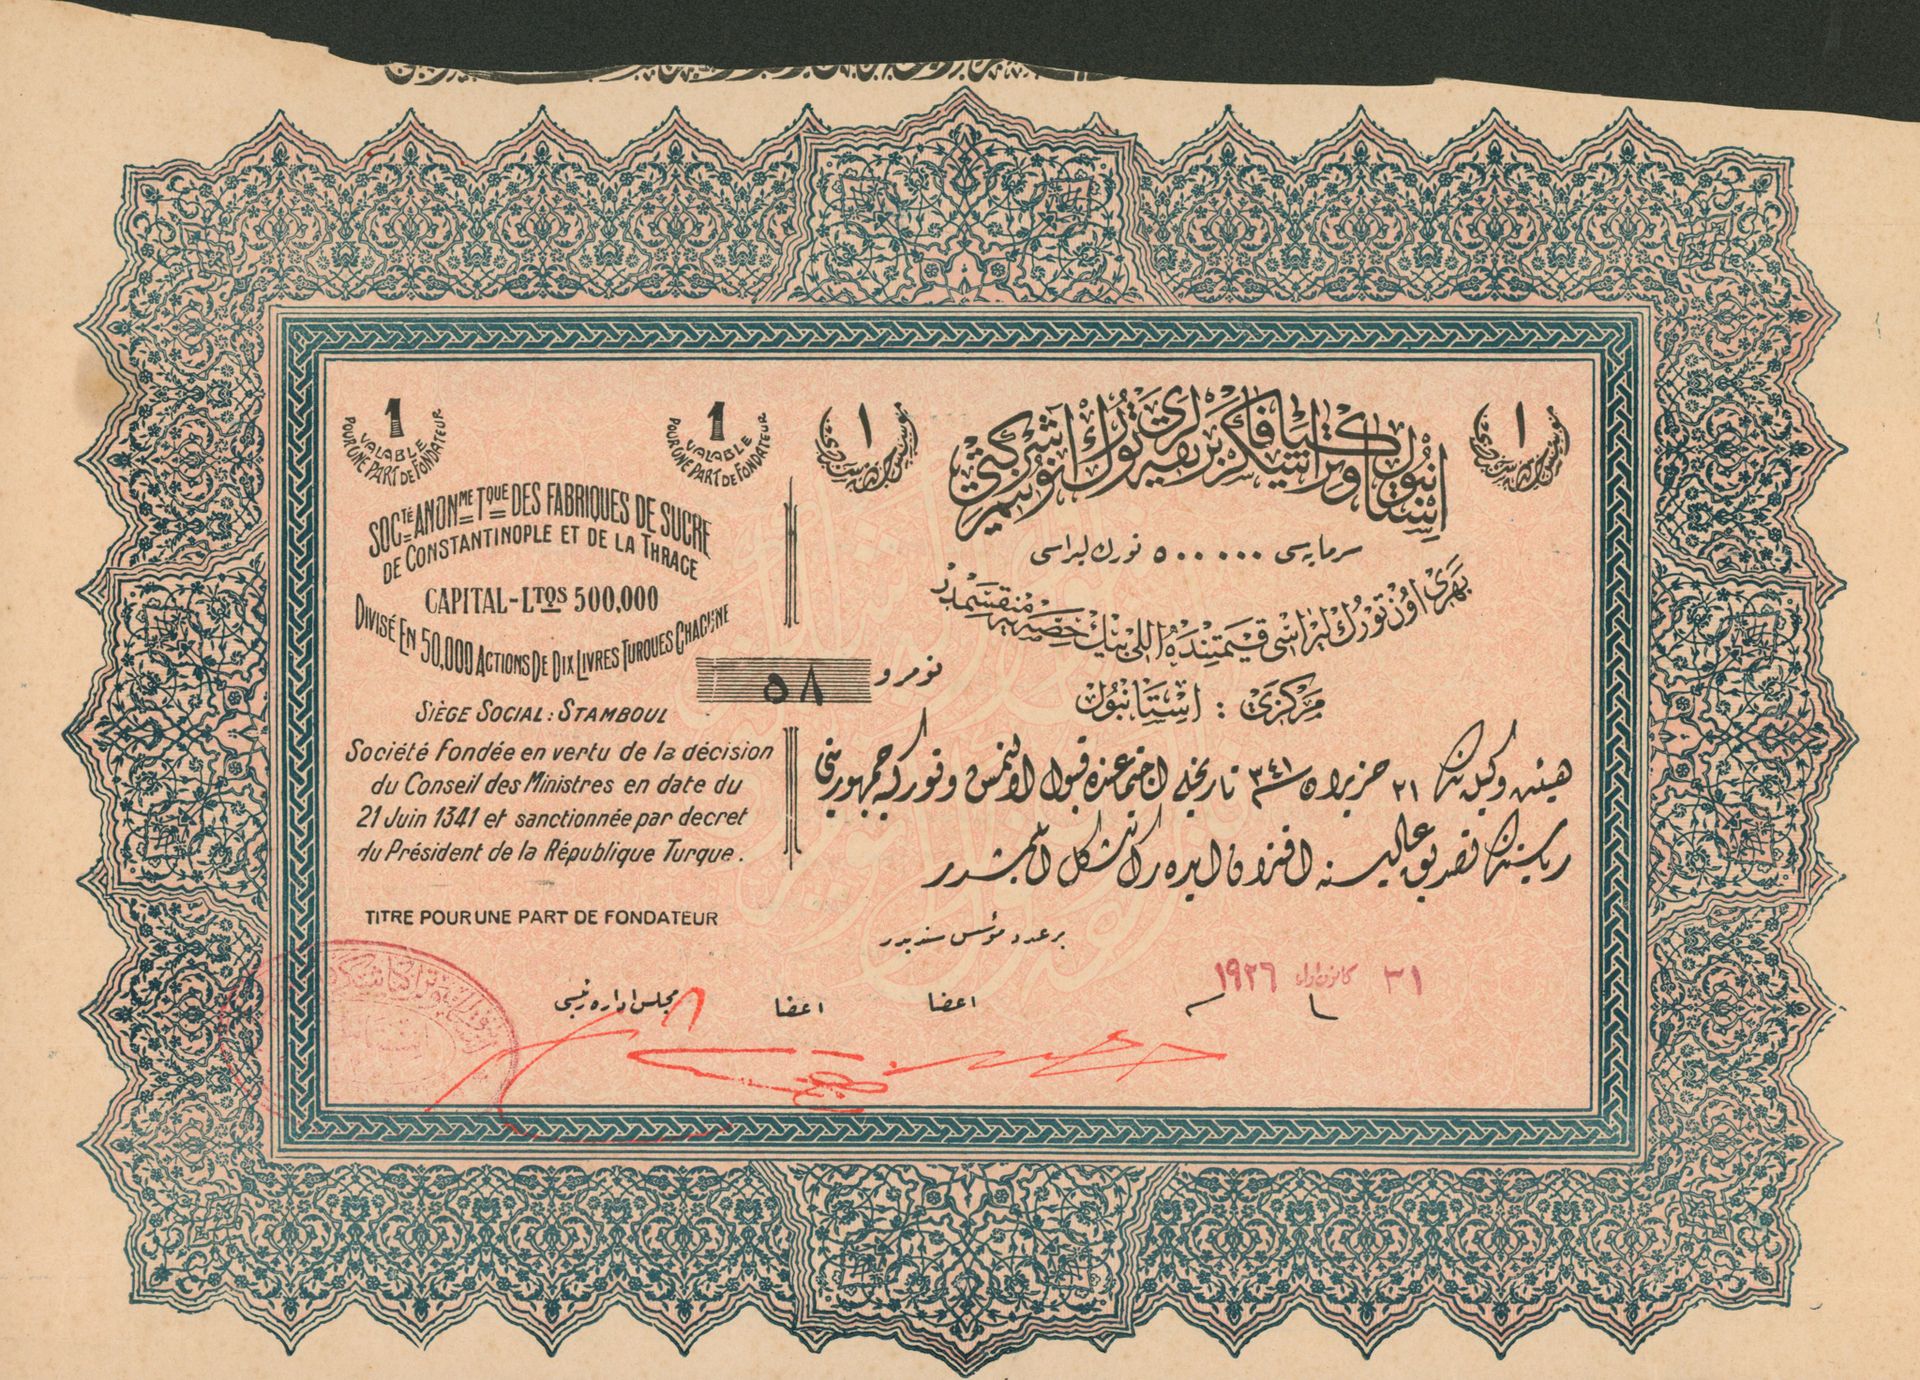 1
VALABLE
POUR UNE PART DE FONDATEUR
1
VALABLE
POUR UNE PART DE FONDATEUR
SOCTÉ ANONME TQUE DES FABRIQUES DE SUCRE
DE CONSTANTINOPLE ET DE LA THRACE
CAPITAL-LTQS 500,000
DIVISÉ EN 50,000 ACTIONS DE DIX LIVRES TURQUES CHACUNE
SIÈGE SOCIAL: STAMBOUL
Société fondée en vertu de la décision
du Conseil des Ministres en date du
21 Juin 1341 et sanctionnée par decret
du Président de la République Turque.
TITRE POUR UNE PART DE FONDATEUR
١
١
استانبول و تراكيا شكر فابريقه لرى تورك انونيم شركتى
سرمايه سى ٥٠٠٠٠٠ تورك ليراسى
بهرى اون تورك ليراسى قيمتنده اللى بيك حصه يه منقسمدر
مركزى : استانبول
نومرو ٥٨
هيئت وكيله نك ٢١ حزيران سنه ٣٤١ تاريخلى اجتماعنده قبول اولنمش و تورك جمهوريتى
رياستنك تصديق عاليسنه اقتران ايده رك تشكل ايلمشدر
بر عدد مؤسس سنديدر
٣١ كانون اول ١٩٢٦
اعضا
اعضا
مجلس اداره رئيسى